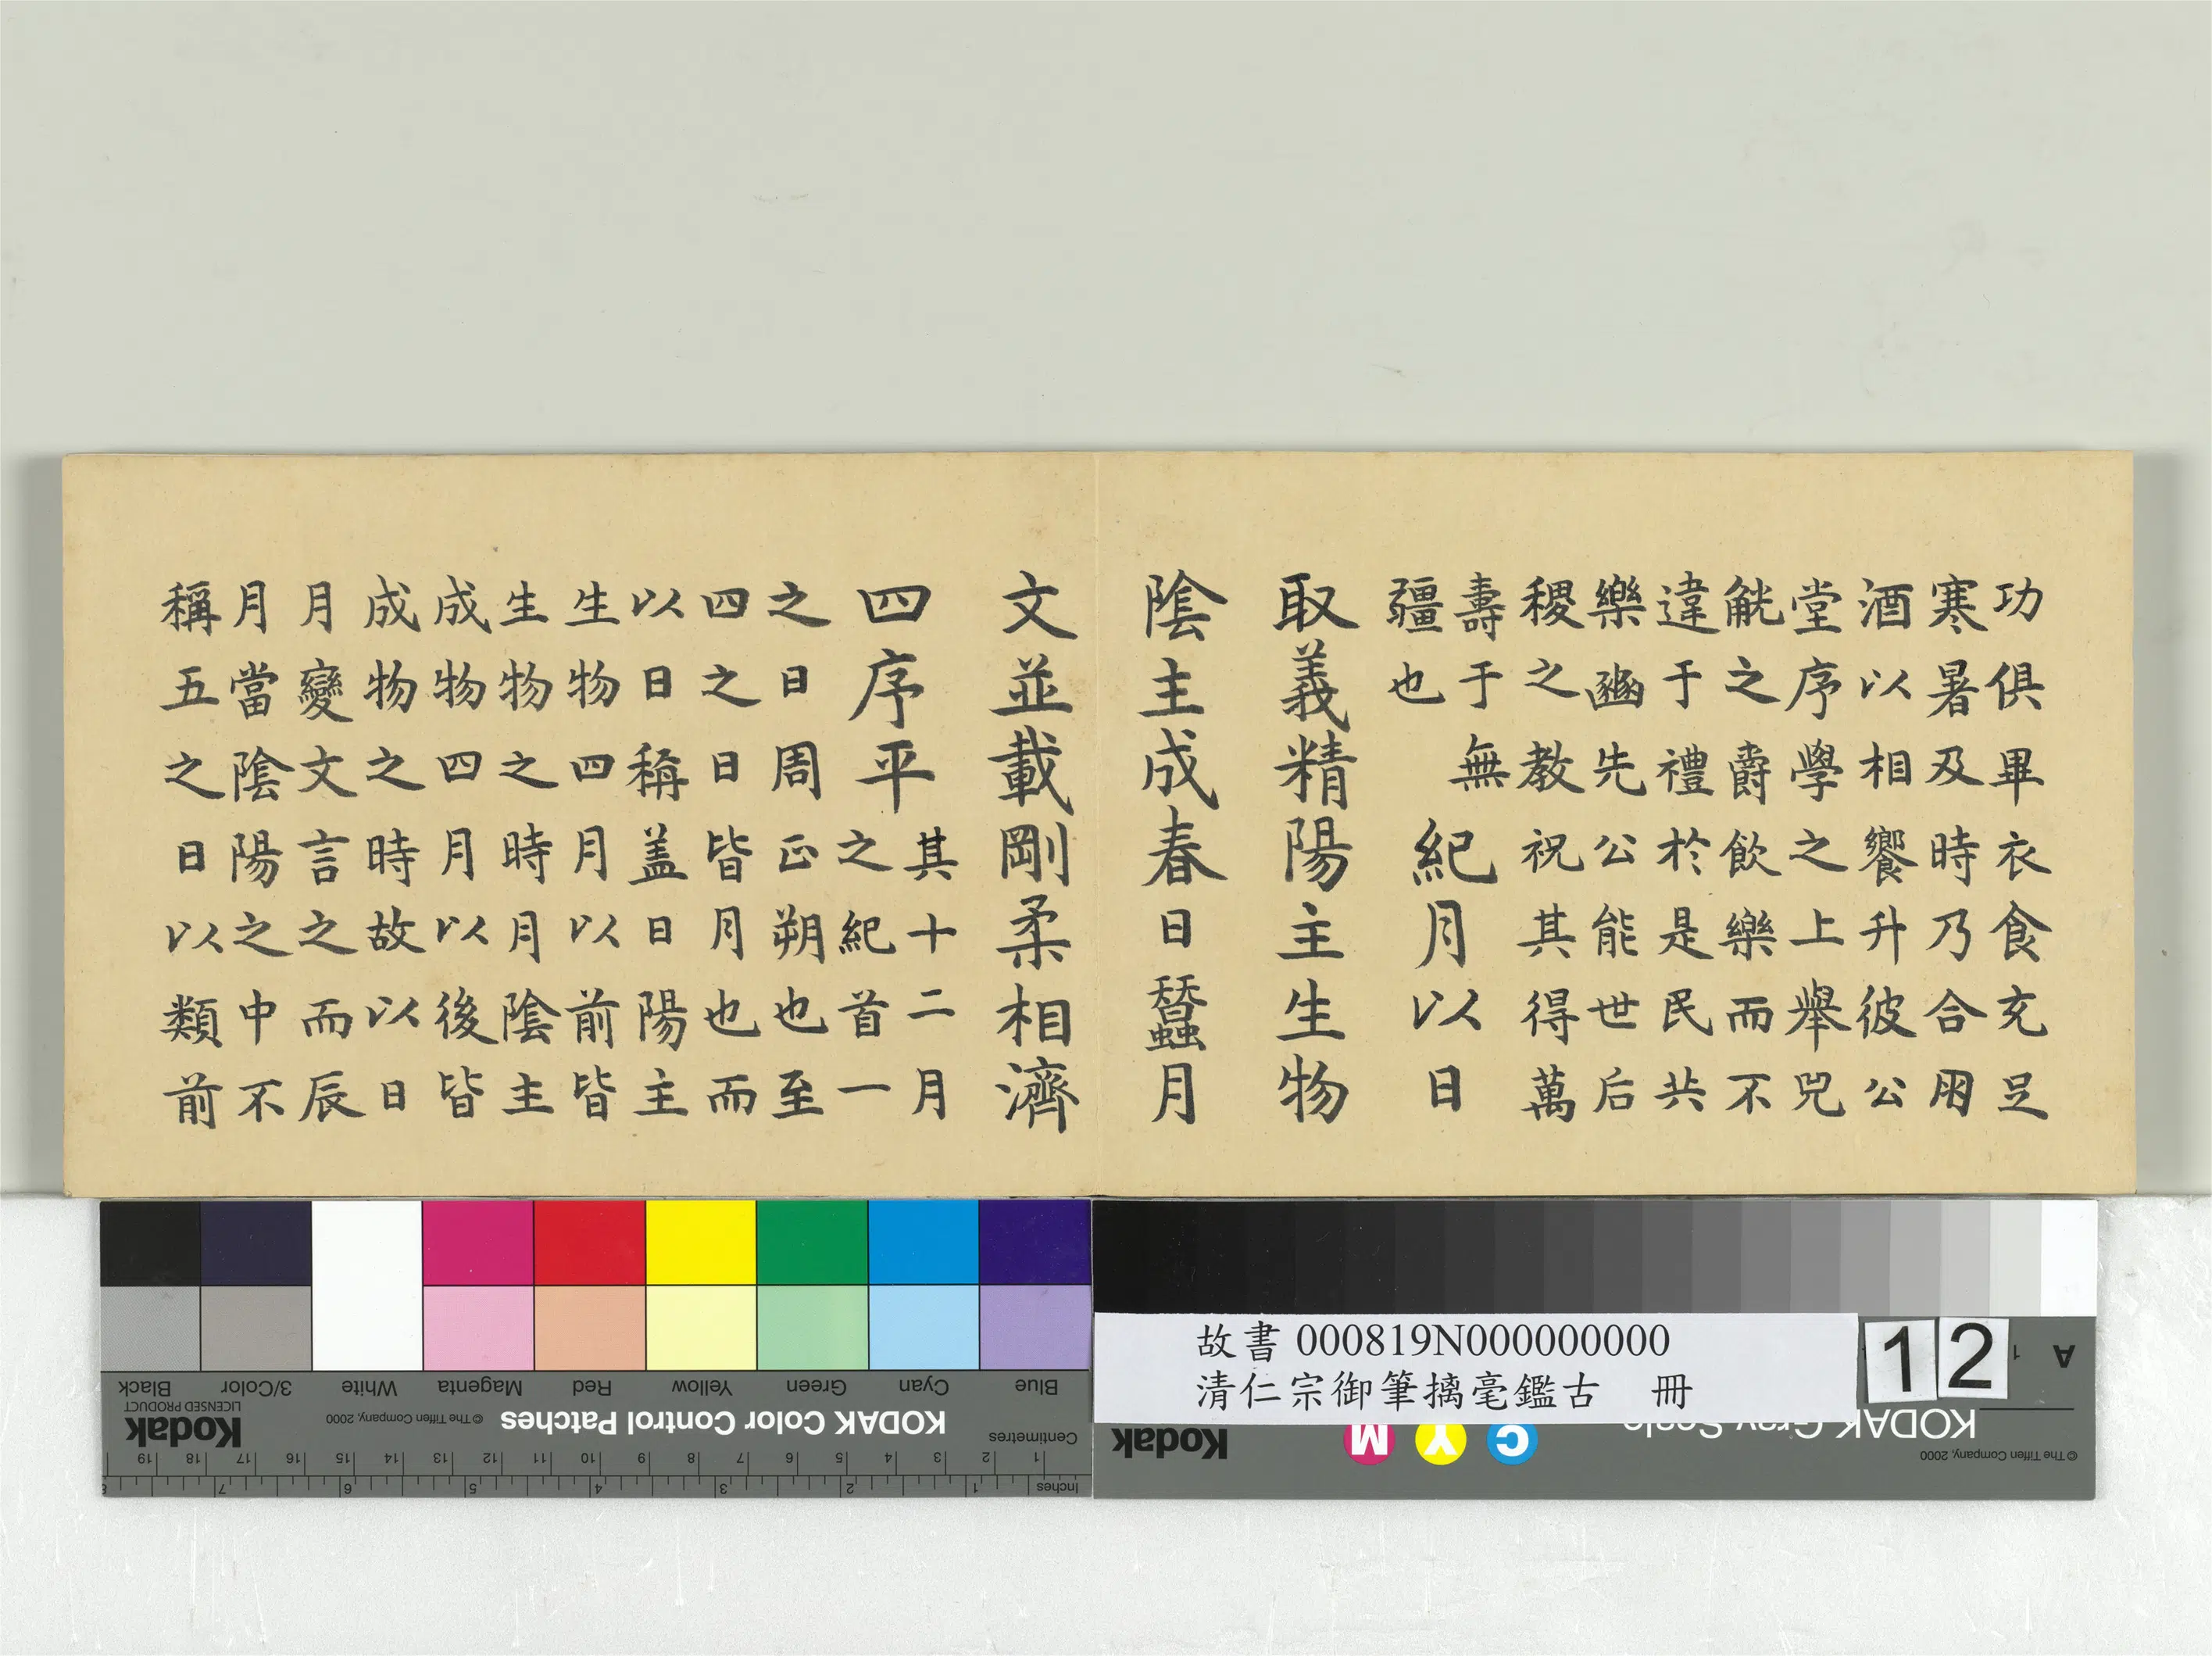 功俱畢衣食充足
寒暑及時乃合用
酒以相饗升彼公
堂序學之上舉兕
觥之爵飲樂而不
違于禮於是民共
樂豳先公能世后
稷之教祝其得萬
壽于無
疆也
紀月以日
取義精陽主生物
陰主成春日蠶月
文並載剛柔相濟
四序平
其十二月
之紀首一
之日周正朔也至
四之日皆月也而
以日稱蓋日陽主
生物四月以前皆
生物之時月陰主
成物四月以後皆
成物之時故以日
月變文言之而辰
月當陰陽之中不
稱五之日以類前
故書 000819N000000000
清仁宗御筆摛毫鑑古 冊
12
Blue
Cyan
Green
Yellow
Red
Magenta
White
3/Color
Black
KODAK Color Control Patches
© The Tiffen Company, 2000
Kodak
LICENSED PRODUCT
Centimetres
1 2 3 4 5 6 7 8 9 10 11 12 13 14 15 16 17 18 19
Inches
1 2 3 4 5 6 7 8
KODAK Gray Scale
© The Tiffen Company, 2000
C Y M
Kodak
A 1